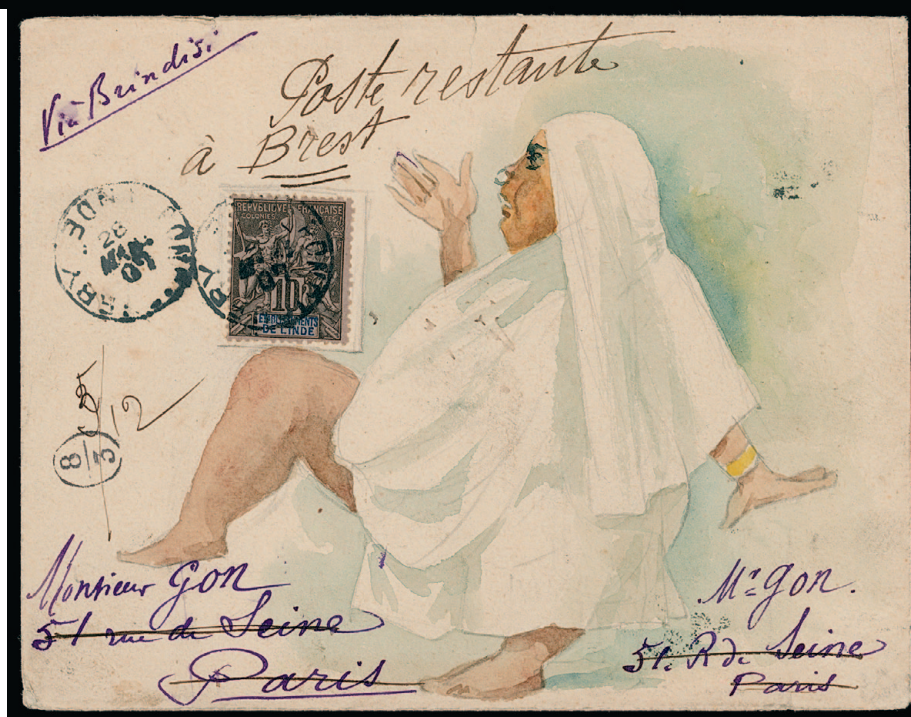 Via Brindisi
Poste restante
à Brest
INDE
26
MAR.
REPUBLIQUE FRANÇAISE
COLONIES POSTES
10c
ETABLISSEMENTS
DE L'INDE
12
8
3
Monsieur Gon
51 rue de Seine
Paris
Mr Gon.
51. R de Seine
Paris